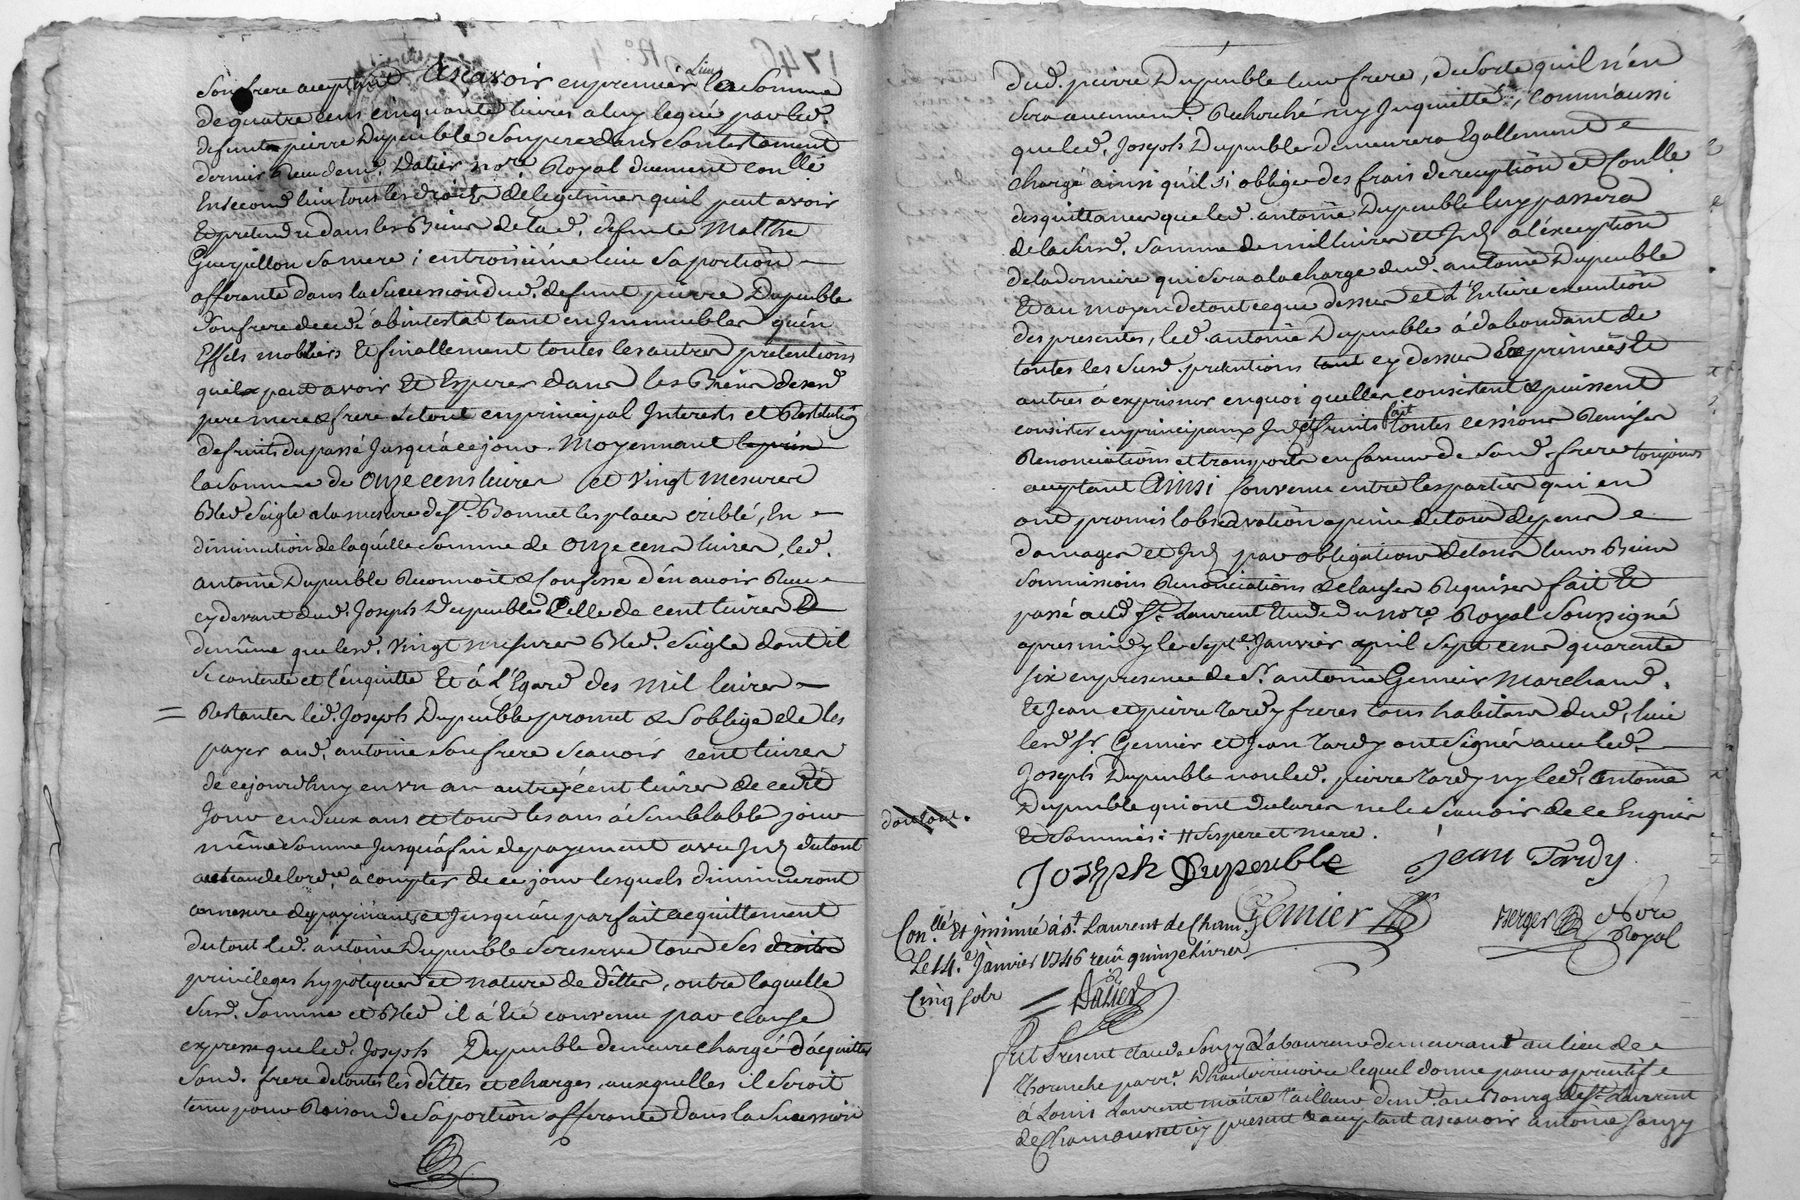 son frere acceptant Ascavoir en premier lieu la somme
de quatre cens cinquante livres a luy legué par led.
defunt pierre Dupeuble son pere dans son testament
dernier Receu dem.e Dalier no.re Royal duement con.llé
En second lieu tous les droits de legitimes qu'il peut avoir
Et pretendre dans les Biens de lad. defunte Mathie
Guerpillon sa mere ; en troisiéme lieu sa portion
afferante dans la succession dud. defunt pierre Dupeuble
son frere decedé abintestat tant en Immeubles qu'en
Effets mobliers Et finallement toutes les autres pretentions
quil peut avoir Et Esperer dans les Biens desd.
pere mere & frere le tout en principal Interests et Restitution
de fruits du passé Jusqu'a ce jour. Moyennant le prix
la somme de Onze cens livres et vingt mesures
Bled seigle a la mesure de St. Bonnet les places criblé, En
diminution de laquelle somme de Onze cens livres, led.
antoine Dupeuble Reconnoit & Confesse d'en avoir Receu
cy devant dud. Joseph Dupeuble Celle de cent livres Et
de même que lesd. vingt mesures Bled. seigle dont il
se contente et l'enquitte Et à L'Egard des mil livres
Restantes led. Joseph Dupeuble promet & s'oblige de les
payer aud. antoine son frere scavoir cent livres
de ce jourdhuy en un an autres cent livres de ce dit
Jour en deux ans et tous les ans à semblable jour
même somme Jusqu'a fin de payement avec Jnts. du tout
au taux de l'ord.ce à compter de ce jour lesquels diminueront
a mesure des payements et Jusqu'au parfait acquittement
du tout led. antoine Dupeuble se reserve tous ses droits
privileges hypoteques et nature de dêttes, outre laquelle
susd. somme et Bled il à Eté convenu par clause
expresse que led. Joseph Dupeuble demeure chargé d'acquitter
sond. frere de toutes les dêttes et charges auxquelles il seroit
tenu pour Raison de sa portion afferante dans la succession
dud. pierre Dupeuble leur frere, de sorte qu'il n'en
sera aucunem.t Recherché ny Inquietté, comm'aussi
que led. Joseph Dupeuble demeurera Egallement
chargé ainsi qu'il s'i oblige des frais de reception et Con.lle
des quittances que led. antoine Dupeuble luy passera
de la susd. somme de mil livres et Jnts. à l'exception
de la derniere qui sera a la charge dud. antoine Dupeuble
Et au moyen de tout ce que dessus et L'Entiere execution
des presentes, led. antoine Dupeuble à d'abondant de
toutes les susd. pretentions tant cy dessus Exprimées Et
autres à exprimer en quoi quelles consistent & puissent
consister en principaux Jnts. et fruits fait toutes cessions Remises
Renonciations et transports en faveur de sond. frere toujours
acceptant Ainsi Convenu entre les parties qui en
ont promis l'observation a peine de tous depens
damages et Jnts. par obligation de tous leurs Biens
soumissions Renonciations & clauses Requises fait Et
passé aud. St. Laurent Etude du no.re Royal soussigné
apres midy le sept.e Janvier mil sept cens quarente
six en presence de Sr. antoine Gemier Marchand.
Et Jean et pierre Tardy freres tous habitans dud. lieu
lesd. Sr. Gemier et Jean Tardy ont signés avec led.
Joseph Dupeuble non led. pierre Tardy ny led. Antoine
Dupeuble qui ont declarés ne le scavoir de ce Enquis
Et sommés : # ses pere et mere.
droitur.
Joseph Dupeuble Jean Tardy
Gemier
Berger No.re Royal
Con.llé Et jnsinué à St. Laurent de Cham.t
Le 14.e Janvier 1746 reçu quinze livres
Cinq sols
Dalier
Fut Present claude Souzy Laboureur demeurant au lieu de
Thorenche parr.e D'hauterivoire lequel donne pour aprentif
à Louis Laurent maitre Tailleur dem.t au Bourg de St. Laurent
de Chamousset icy present & acceptant ascavoir antoine Souzy